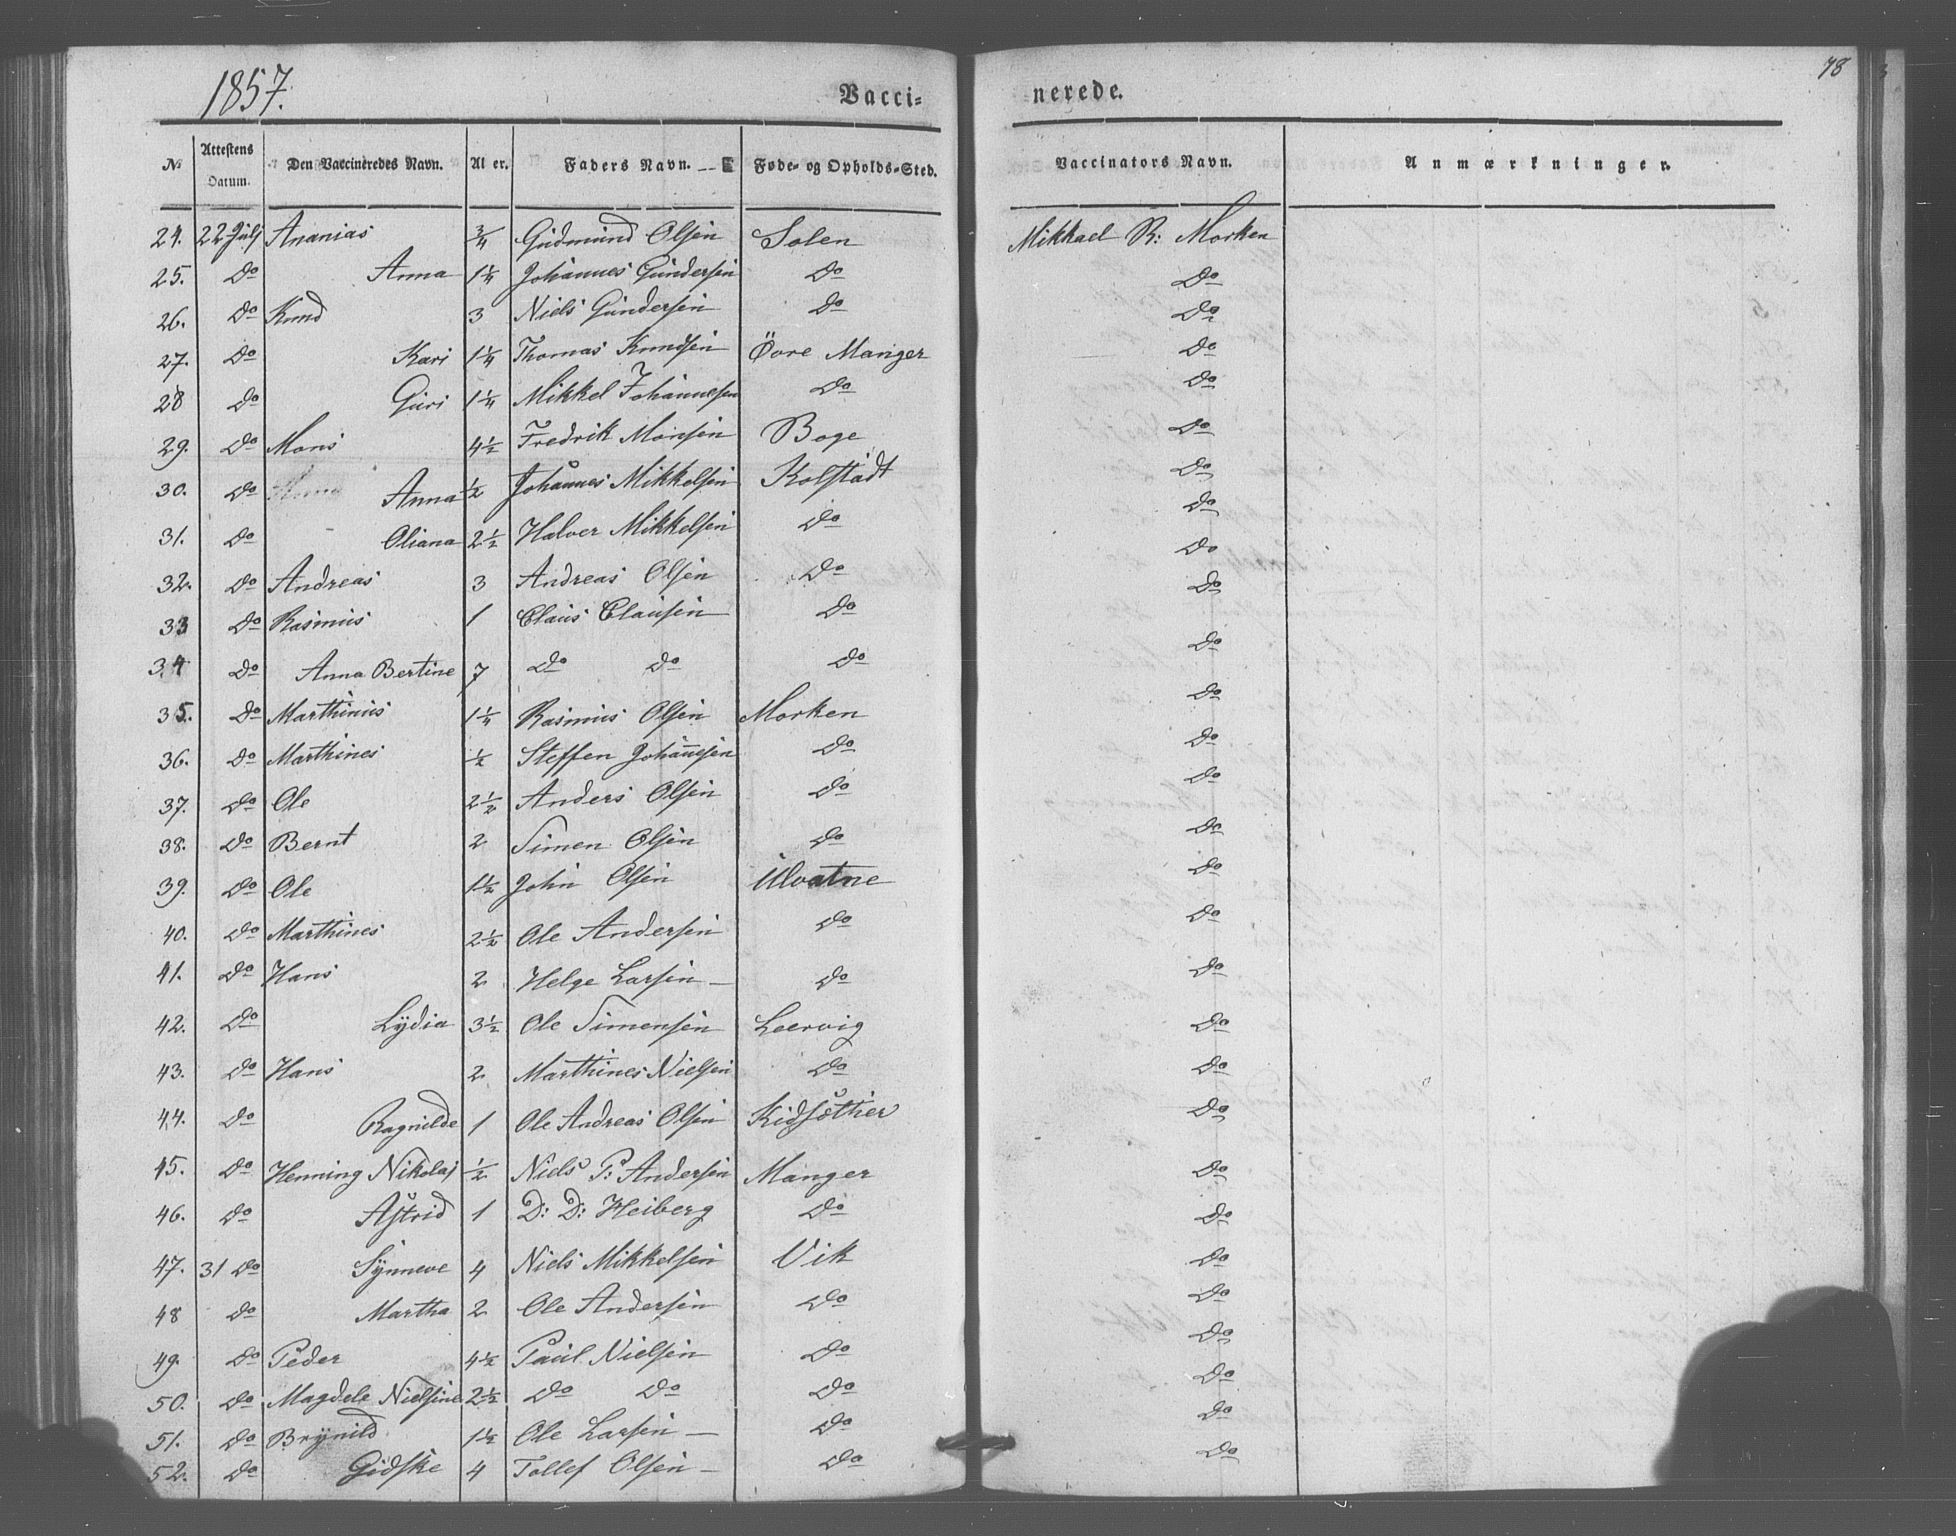 1857. Vacci= nerede. 78
No Attestens Datum. Den Vaccineredes Navn. Alder. Faders Navn. Føde- og Opholds-Sted. Vaccinators Navn. Anmærkninger.
24. 22 Julj Ananias 3/4 Gudmund Olsen Solen Mikkael R: Morken
25. Do Anna 1 1/4 Johannes Gundersen Do Do
26. Do Knud 3 Niels Gundersen Do Do
27. Do Kari 1 1/4 Thomas Knudsen Övre Manger Do
28 Do Guri 1 1/4 Mikkel Johannesen Do Do
29. Do Mons 4 1/2 Fredrik Monsen Boge Do
30. Do Anna 1/2 Johannes Mikkelsen Kolstadt Do
31. Do Oliana 2 1/2 Halver Mikkelsen Do Do
32. Do Andreas 3 Andreas Olsen Do Do
33 Do Rasmus 1 Claus Clausen Do Do
34 Do Anna Bertine 7 Do Do Do Do
35. Do Marthinus 1 1/4 Rasmus Olsen Morken Do
36. Do Marthines 1/2 Steffen Johannesen Do Do
37. Do Ole 2 1/2 Anders Olsen Do Do
38. Do Bernt 2 Simen Olsen Do Do
39. Do Ole 1 1/2 John Olsen Ulvatne Do
40. Do Marthines 2 1/2 Ole Andersen Do Do
41. Do Hans 2 Helge Larsen Do Do
42. Do Lydia 3 1/2 Ole Simensen Leervig Do
43. Do Hans 2 Marthines Nielsen Do Do
44. Do Ragnilde 1 Ole Andreas Olsen Kidsöther Do
45. Do Henning Nikolaj 1/2 Niels P: Andersen Manger Do
46. Do Astrid 1 D: D: Heiberg Do Do
47. 31 Do Synneve 4 Niels Mikkelsen Vik Do
48 Do Martha 2 Ole Andersen Do Do
49. Do Peder 4 1/2 Paul Nielsen Do Do
50. Do Magdele Nielsine 2 1/2 Do Do Do Do
51. Do Brynild 1 1/2 Ole Larsen Do Do
52. Do Gidske 4 Tollef Olsen Do Do